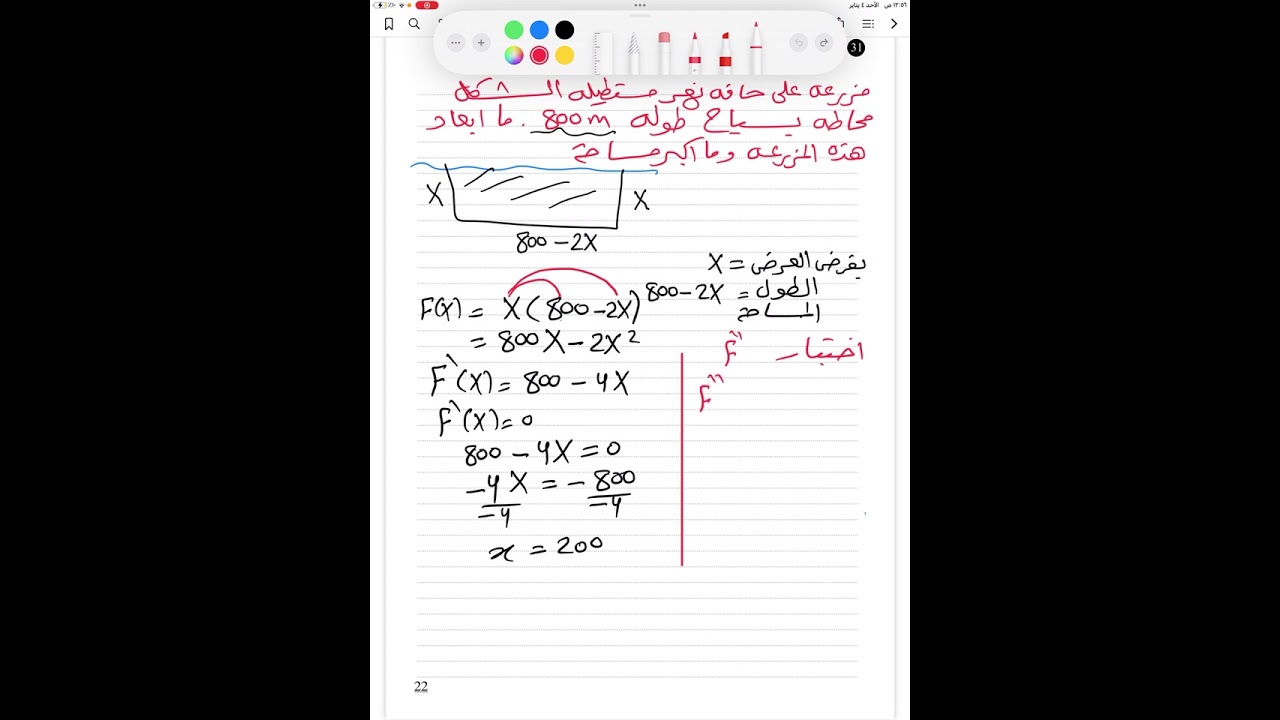 ١٢:٥٦ ص الأحد ٤ يناير
31
مزرعه على حافه نهر مستطيله الشكل
محاطه بسياج طوله 800m . ما ابعاد
هذه المزرعه وما اكبر مساحة
X X
800 - 2X
يفرض العرض = X
الطول = 800-2X
المساحة
F(X) = X(800-2X)
= 800X - 2X²
اختبار F''
F'(X) = 800 - 4X
F''
F'(X) = 0
800 - 4X = 0
-4X = -800
-4 -4
x = 200
22